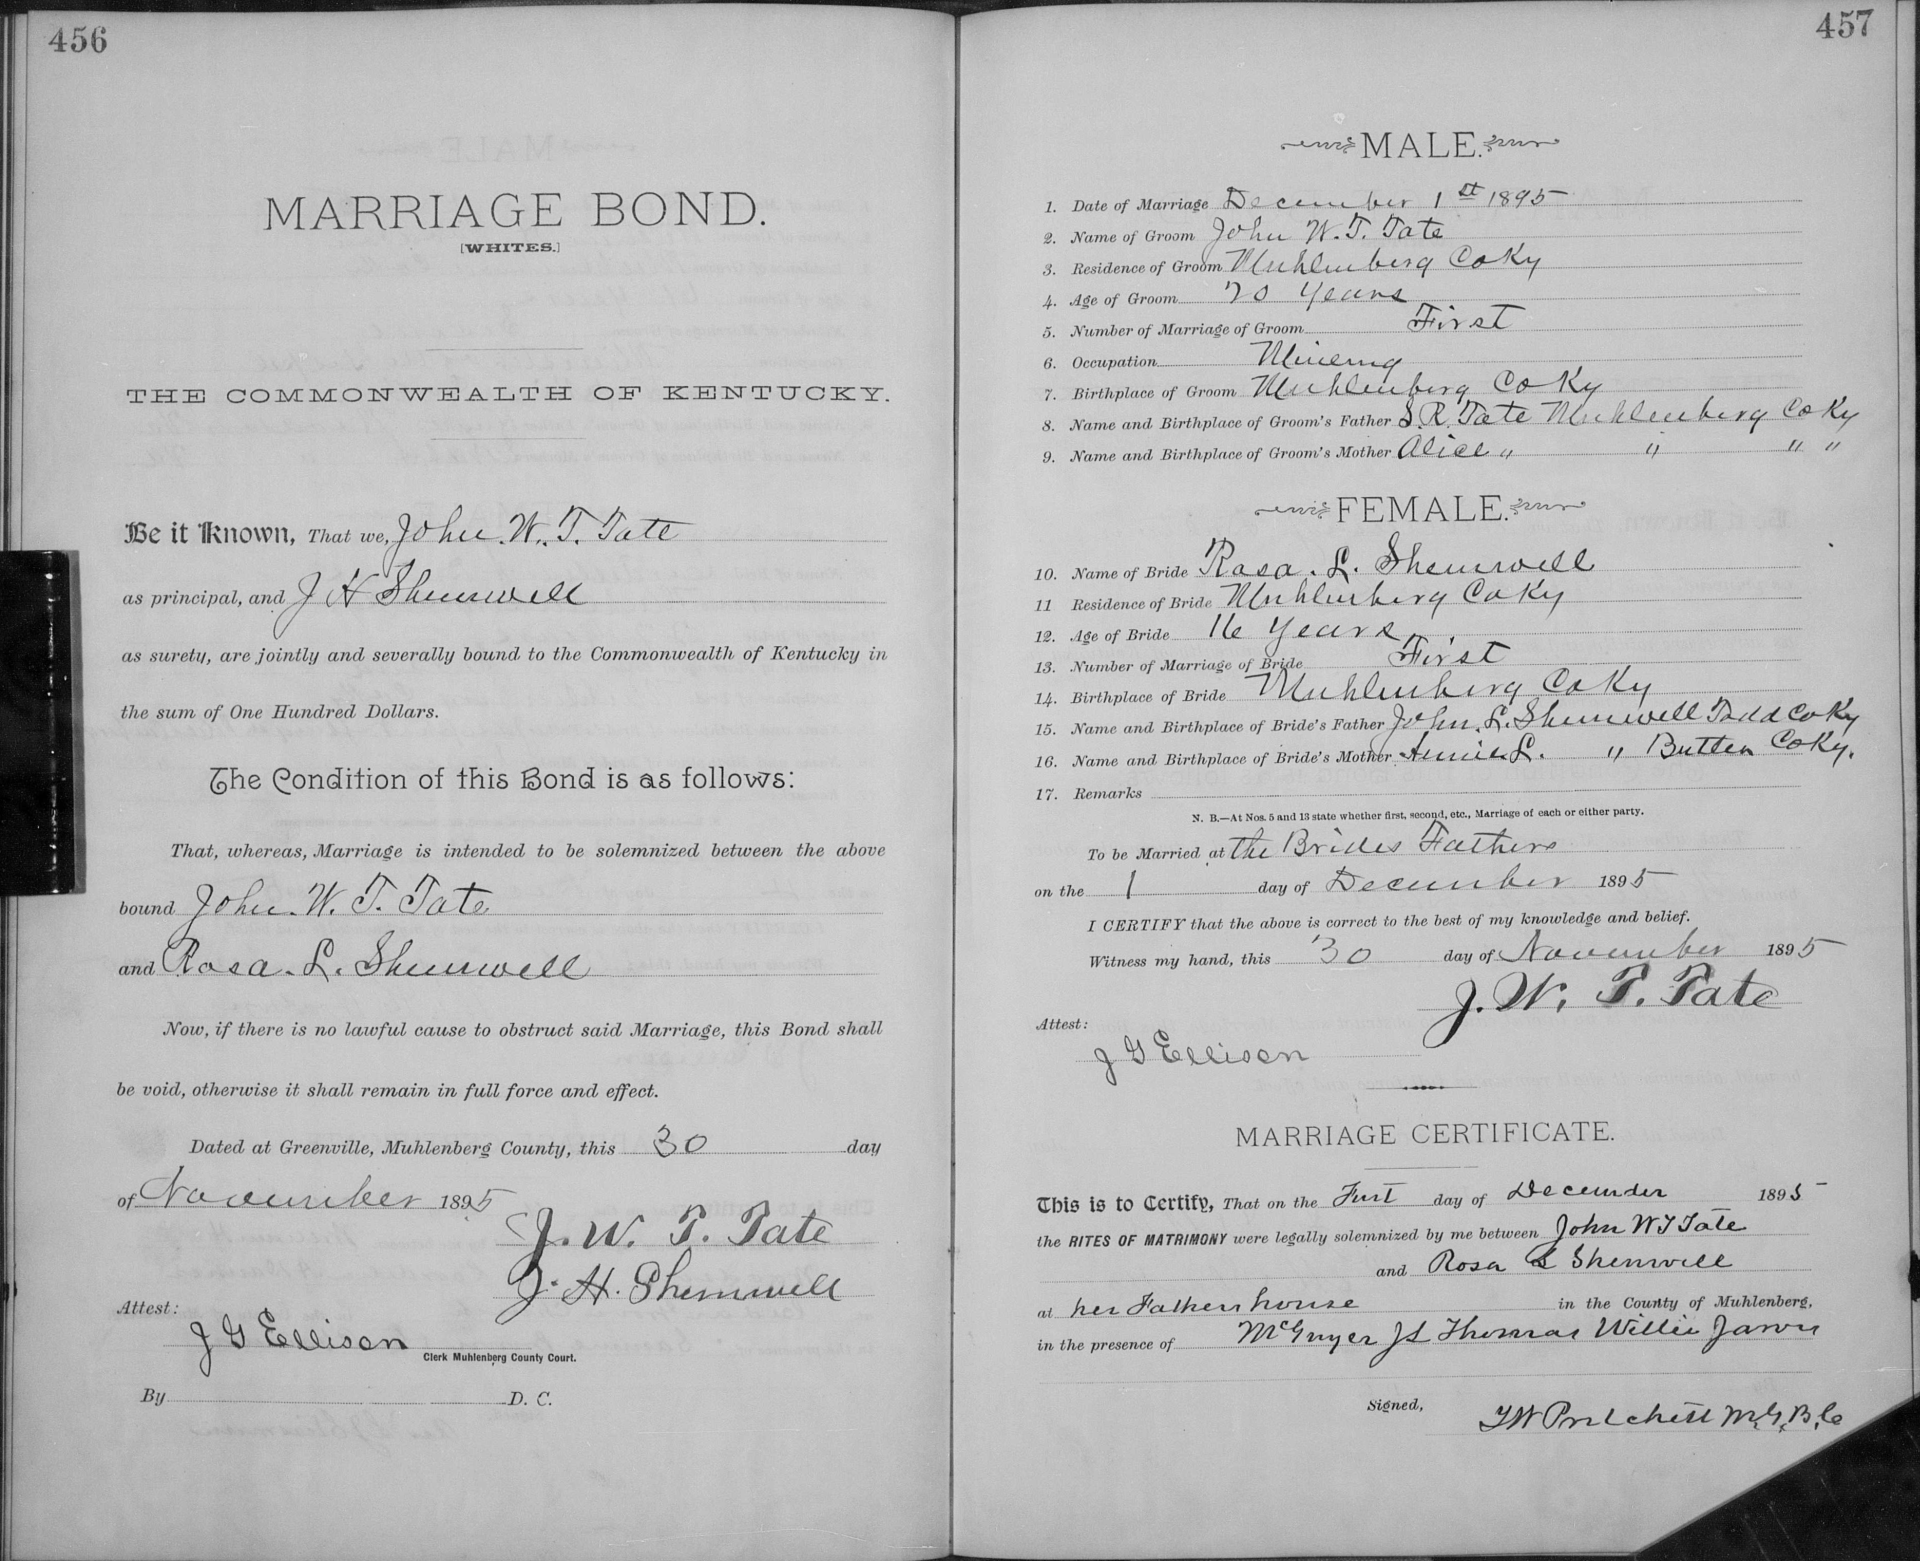 456
MARRIAGE BOND.
[WHITES.]
THE COMMONWEALTH OF KENTUCKY.
Be it Known, That we, John. W. T. Tate
as principal, and J H Shemwell
as surety, are jointly and severally bound to the Commonwealth of Kentucky in
the sum of One Hundred Dollars.
The Condition of this Bond is as follows:
That, whereas, Marriage is intended to be solemnized between the above
bound John. W. T. Tate
and Rosa. L. Shemwell
Now, if there is no lawful cause to obstruct said Marriage, this Bond shall
be void, otherwise it shall remain in full force and effect.
Dated at Greenville, Muhlenberg County, this 30 day
of November 1895
J. W. T. Tate
J. H. Shemwell
Attest:
J G Ellison
Clerk Muhlenberg County Court.
By D. C.
457
MALE.
1. Date of Marriage December 1st 1895
2. Name of Groom John W. T. Tate
3. Residence of Groom Muhlenberg Co Ky
4. Age of Groom 20 Years
5. Number of Marriage of Groom First
6. Occupation Minering
7. Birthplace of Groom Muhlenberg Co Ky
8. Name and Birthplace of Groom's Father S. R. Tate Muhlenberg Co Ky
9. Name and Birthplace of Groom's Mother Alice " " " "
FEMALE.
10. Name of Bride Rosa. L. Shemwell
11 Residence of Bride Muhlenberg Co Ky
12. Age of Bride 16 Years
13. Number of Marriage of Bride First
14. Birthplace of Bride Muhlenberg Co Ky
15. Name and Birthplace of Bride's Father John. L. Shemwell Todd Co Ky
16. Name and Birthplace of Bride's Mother Annie L. " Butler Co Ky.
17. Remarks
N. B.—At Nos. 5 and 13 state whether first, second, etc., Marriage of each or either party.
To be Married at the Brides Fathers
on the 1 day of December 1895
I CERTIFY that the above is correct to the best of my knowledge and belief.
Witness my hand, this 30 day of November 1895
J. W. T. Tate
Attest:
J G Ellison
MARRIAGE CERTIFICATE.
This is to Certify, That on the First day of December 1895
the RITES OF MATRIMONY were legally solemnized by me between John W T Tate
and Rosa L Shemwell
at her Fathers house in the County of Muhlenberg,
in the presence of McGuyer J L Thomas Willie Jarvis
Signed,
T W Pritchett M. G. B. C